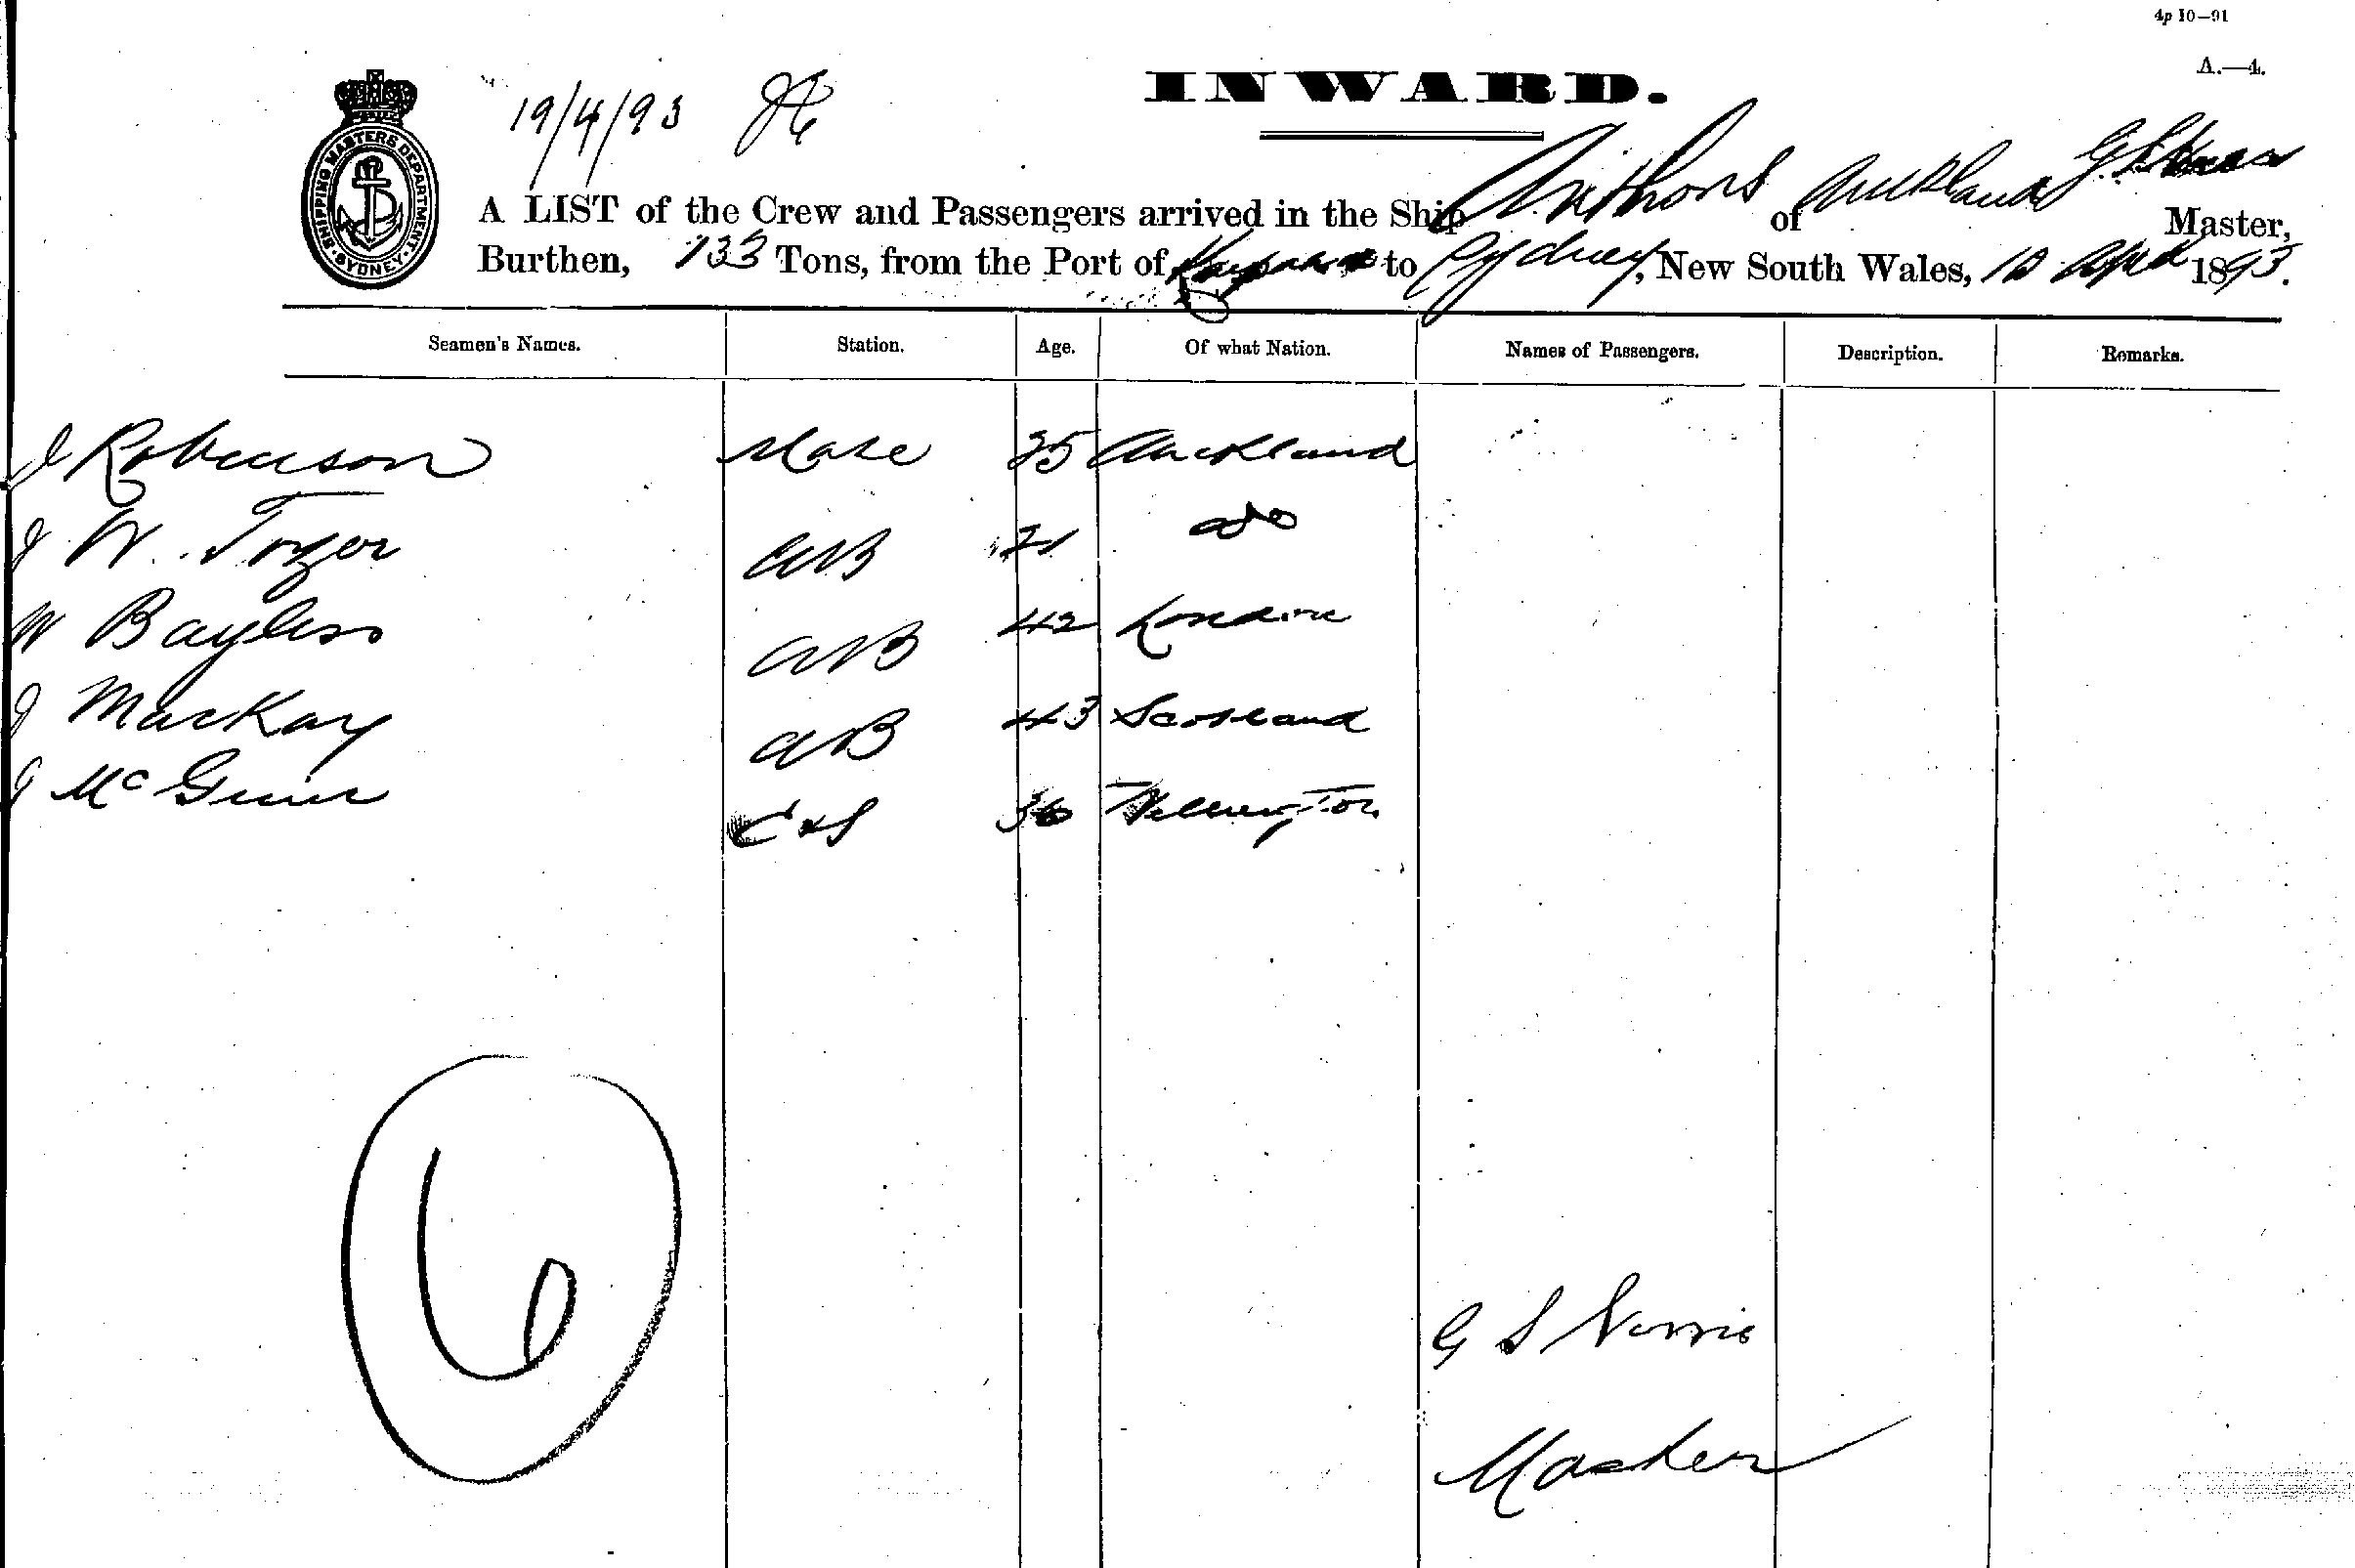 4p 10—91
A.—4.
19/4/93
INWARD.
SHIPPING MASTERS DEPARTMENT · SYDNEY ·
A LIST of the Crew and Passengers arrived in the Ship of Auckland Master,
Burthen, 133 Tons, from the Port of to Sydney, New South Wales, April 1893.
Seamen's Names. Station. Age. Of what Nation. Names of Passengers. Description. Remarks.
J Robinson Mate 25 Auckland
J W. Tozer AB 21 do
W Bayliss AB 42 London
J MacKay AB 43 Scotland
J McGuire C & S 36 Wellington
6
G S Norris
Master